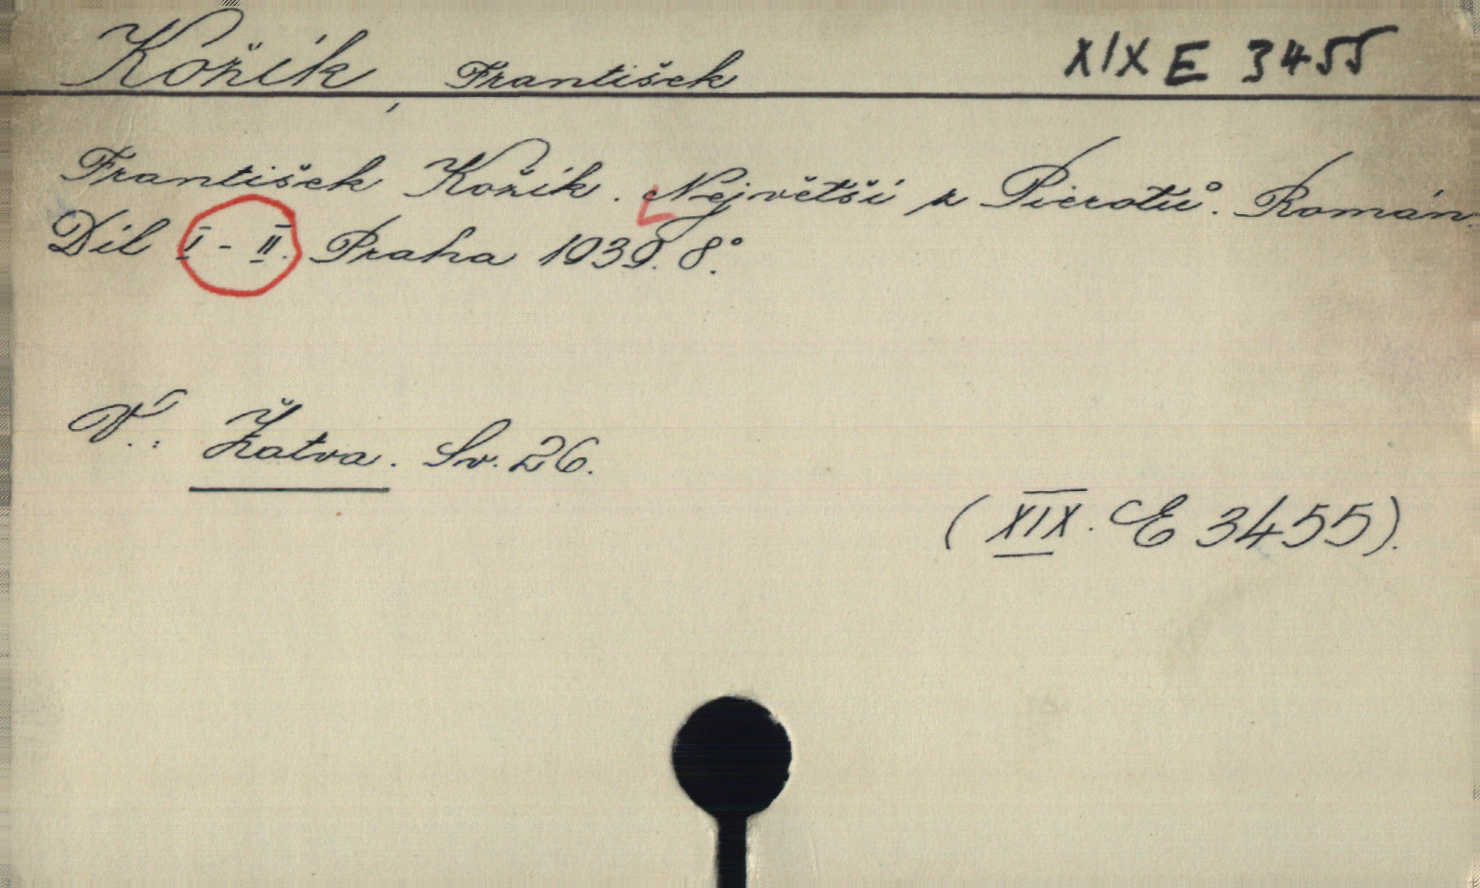 Kožík, František XIX E 3455
František Kožík. Největší z Pierotů. Román.
Díl I - II. Praha 1939. 8°.
V.: Žatva. Sv. 26.
(XIX. E 3455).